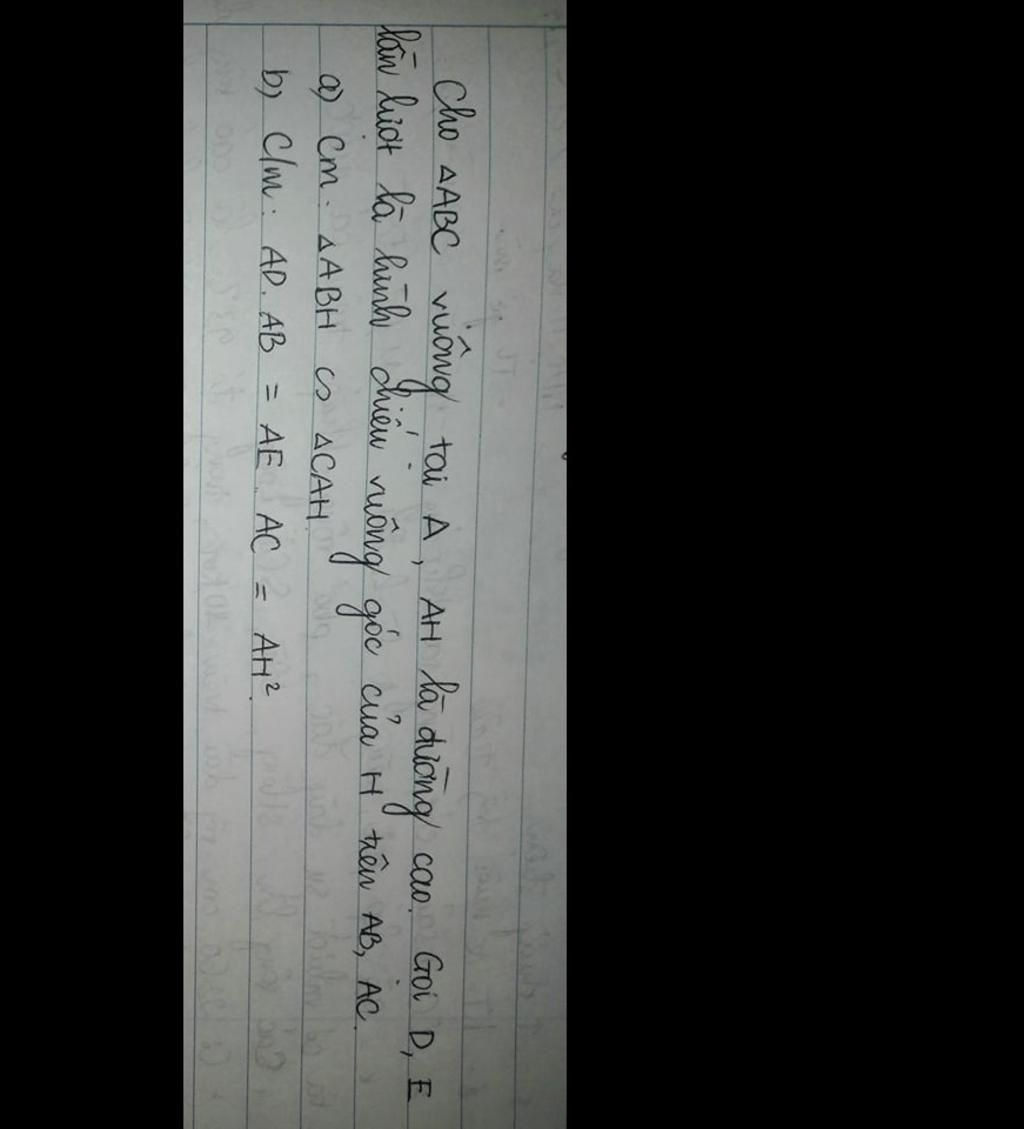 Cho △ABC vuông tại A, AH là đường cao. Gọi D, E
lần lượt là hình chiếu vuông góc của H trên AB, AC.
a) Cm: △ABH ∽ △CAH
b) C/m: AD. AB = AE. AC = AH².